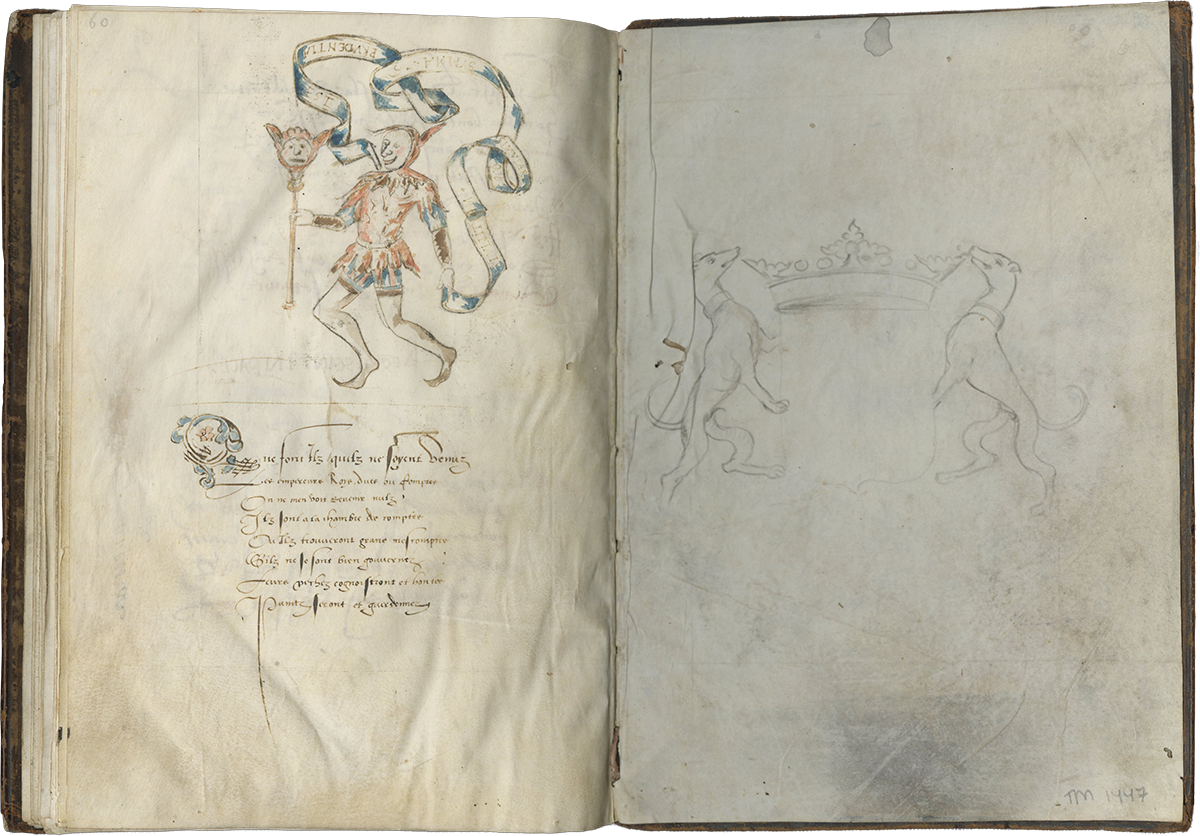 60
PRVDENTIA
PRIMS
Que sont Ilz quilz ne soyent Venuz
Les empereurs Roys ducs ou Comptes
On ne men voit revenir nulz
Ilz sont a la chambre de comptes
Ou Ilz trouveront grans mescomptes
Silz ne se sont bien gouvernez
Leurs pechez cognoistront et hontes
Puniz seront et guerdonnez
TM 1447